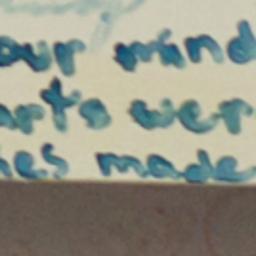 our mind
arts wer
nes made